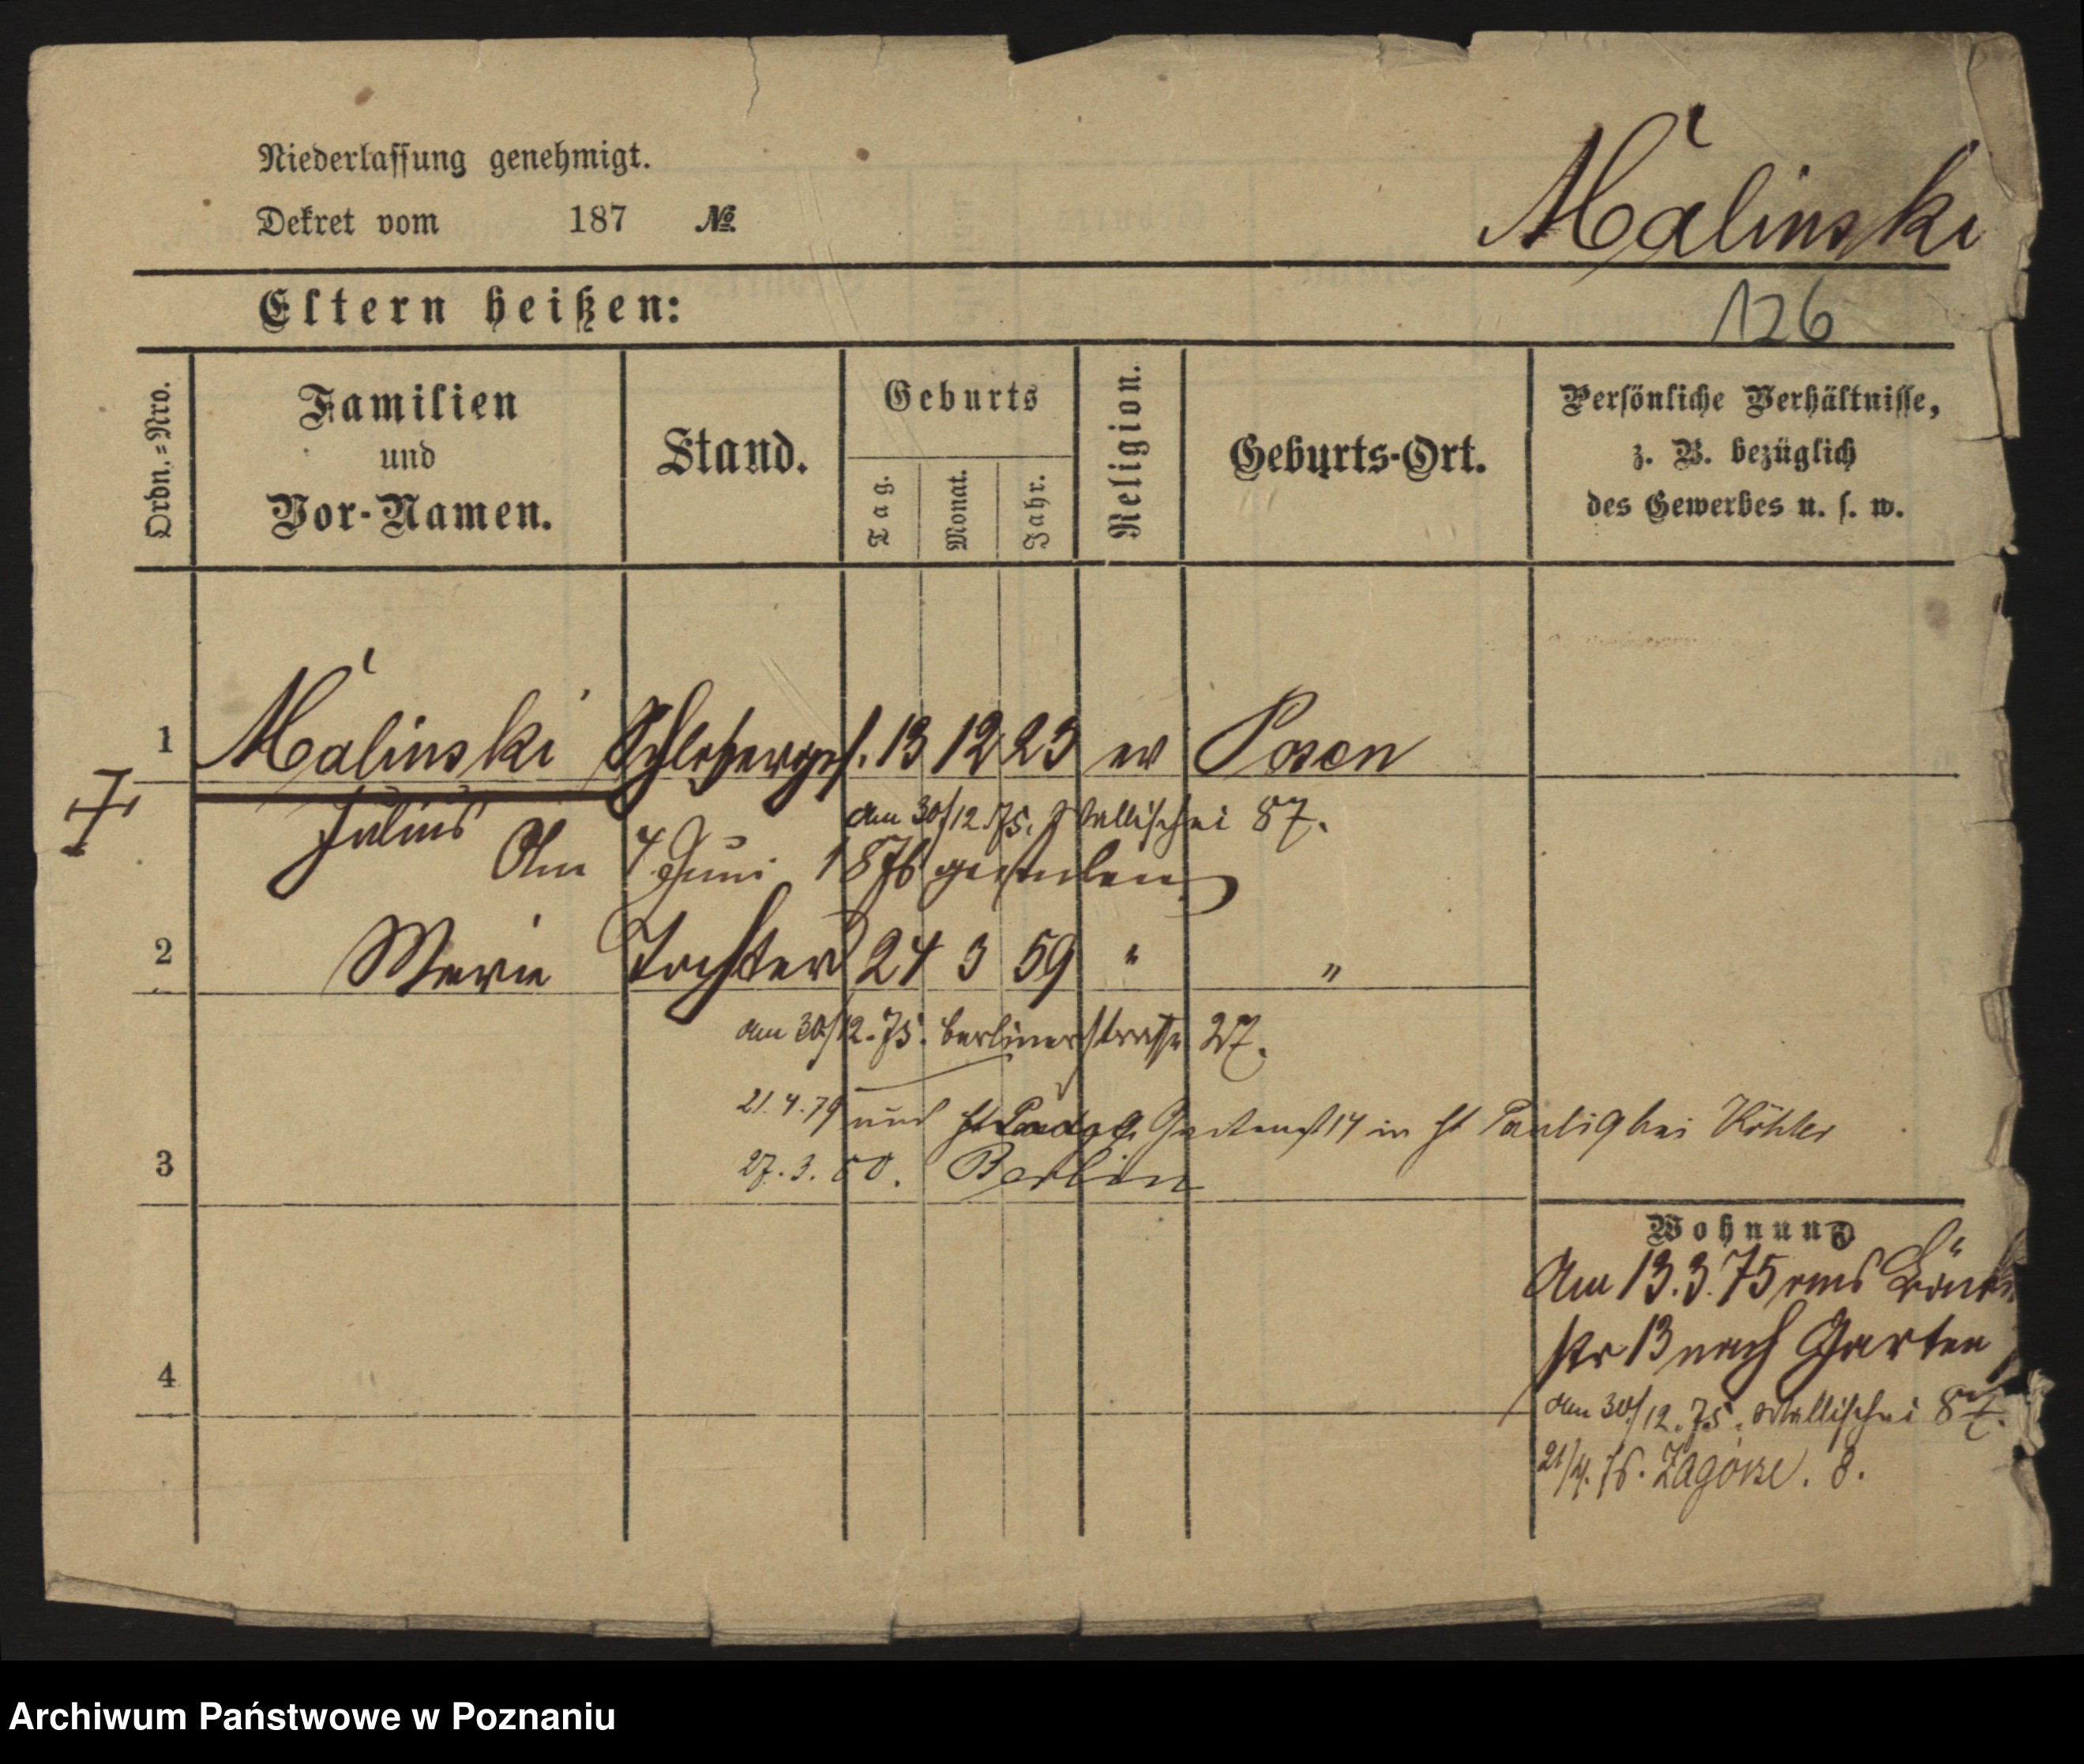 Niederlassung genehmigt.
Dekret vom 187 №
Malinski
Eltern heißen:
126
Ordn.=Nro.
Familien
und
Vor-Namen.
Stand.
Geburts
Tag.
Monat.
Jahr.
Religion.
Geburts-Ort.
Persönliche Verhältnisse,
z. B. bezüglich
des Gewerbes u. s. w.
1 Malinski 13 12 23 ev Posen
Julius
am 30/12.75. Wallischei 87.
Am 7 Juni 1876 gestorben
2 Marie Tochter 24 3 59 " "
am 30/12.75. Berlinerstrasse 27.
21.4.79 und Gartenst 14 in bei Köhler
3
27.3. 80. Berlin
Wohnung
Am 13.3.75 aus
str 13 nach Garten
4
am 30/12.75. Wallischei 87.
21/4. 76. Zagórze. 8.
Archiwum Państwowe w Poznaniu